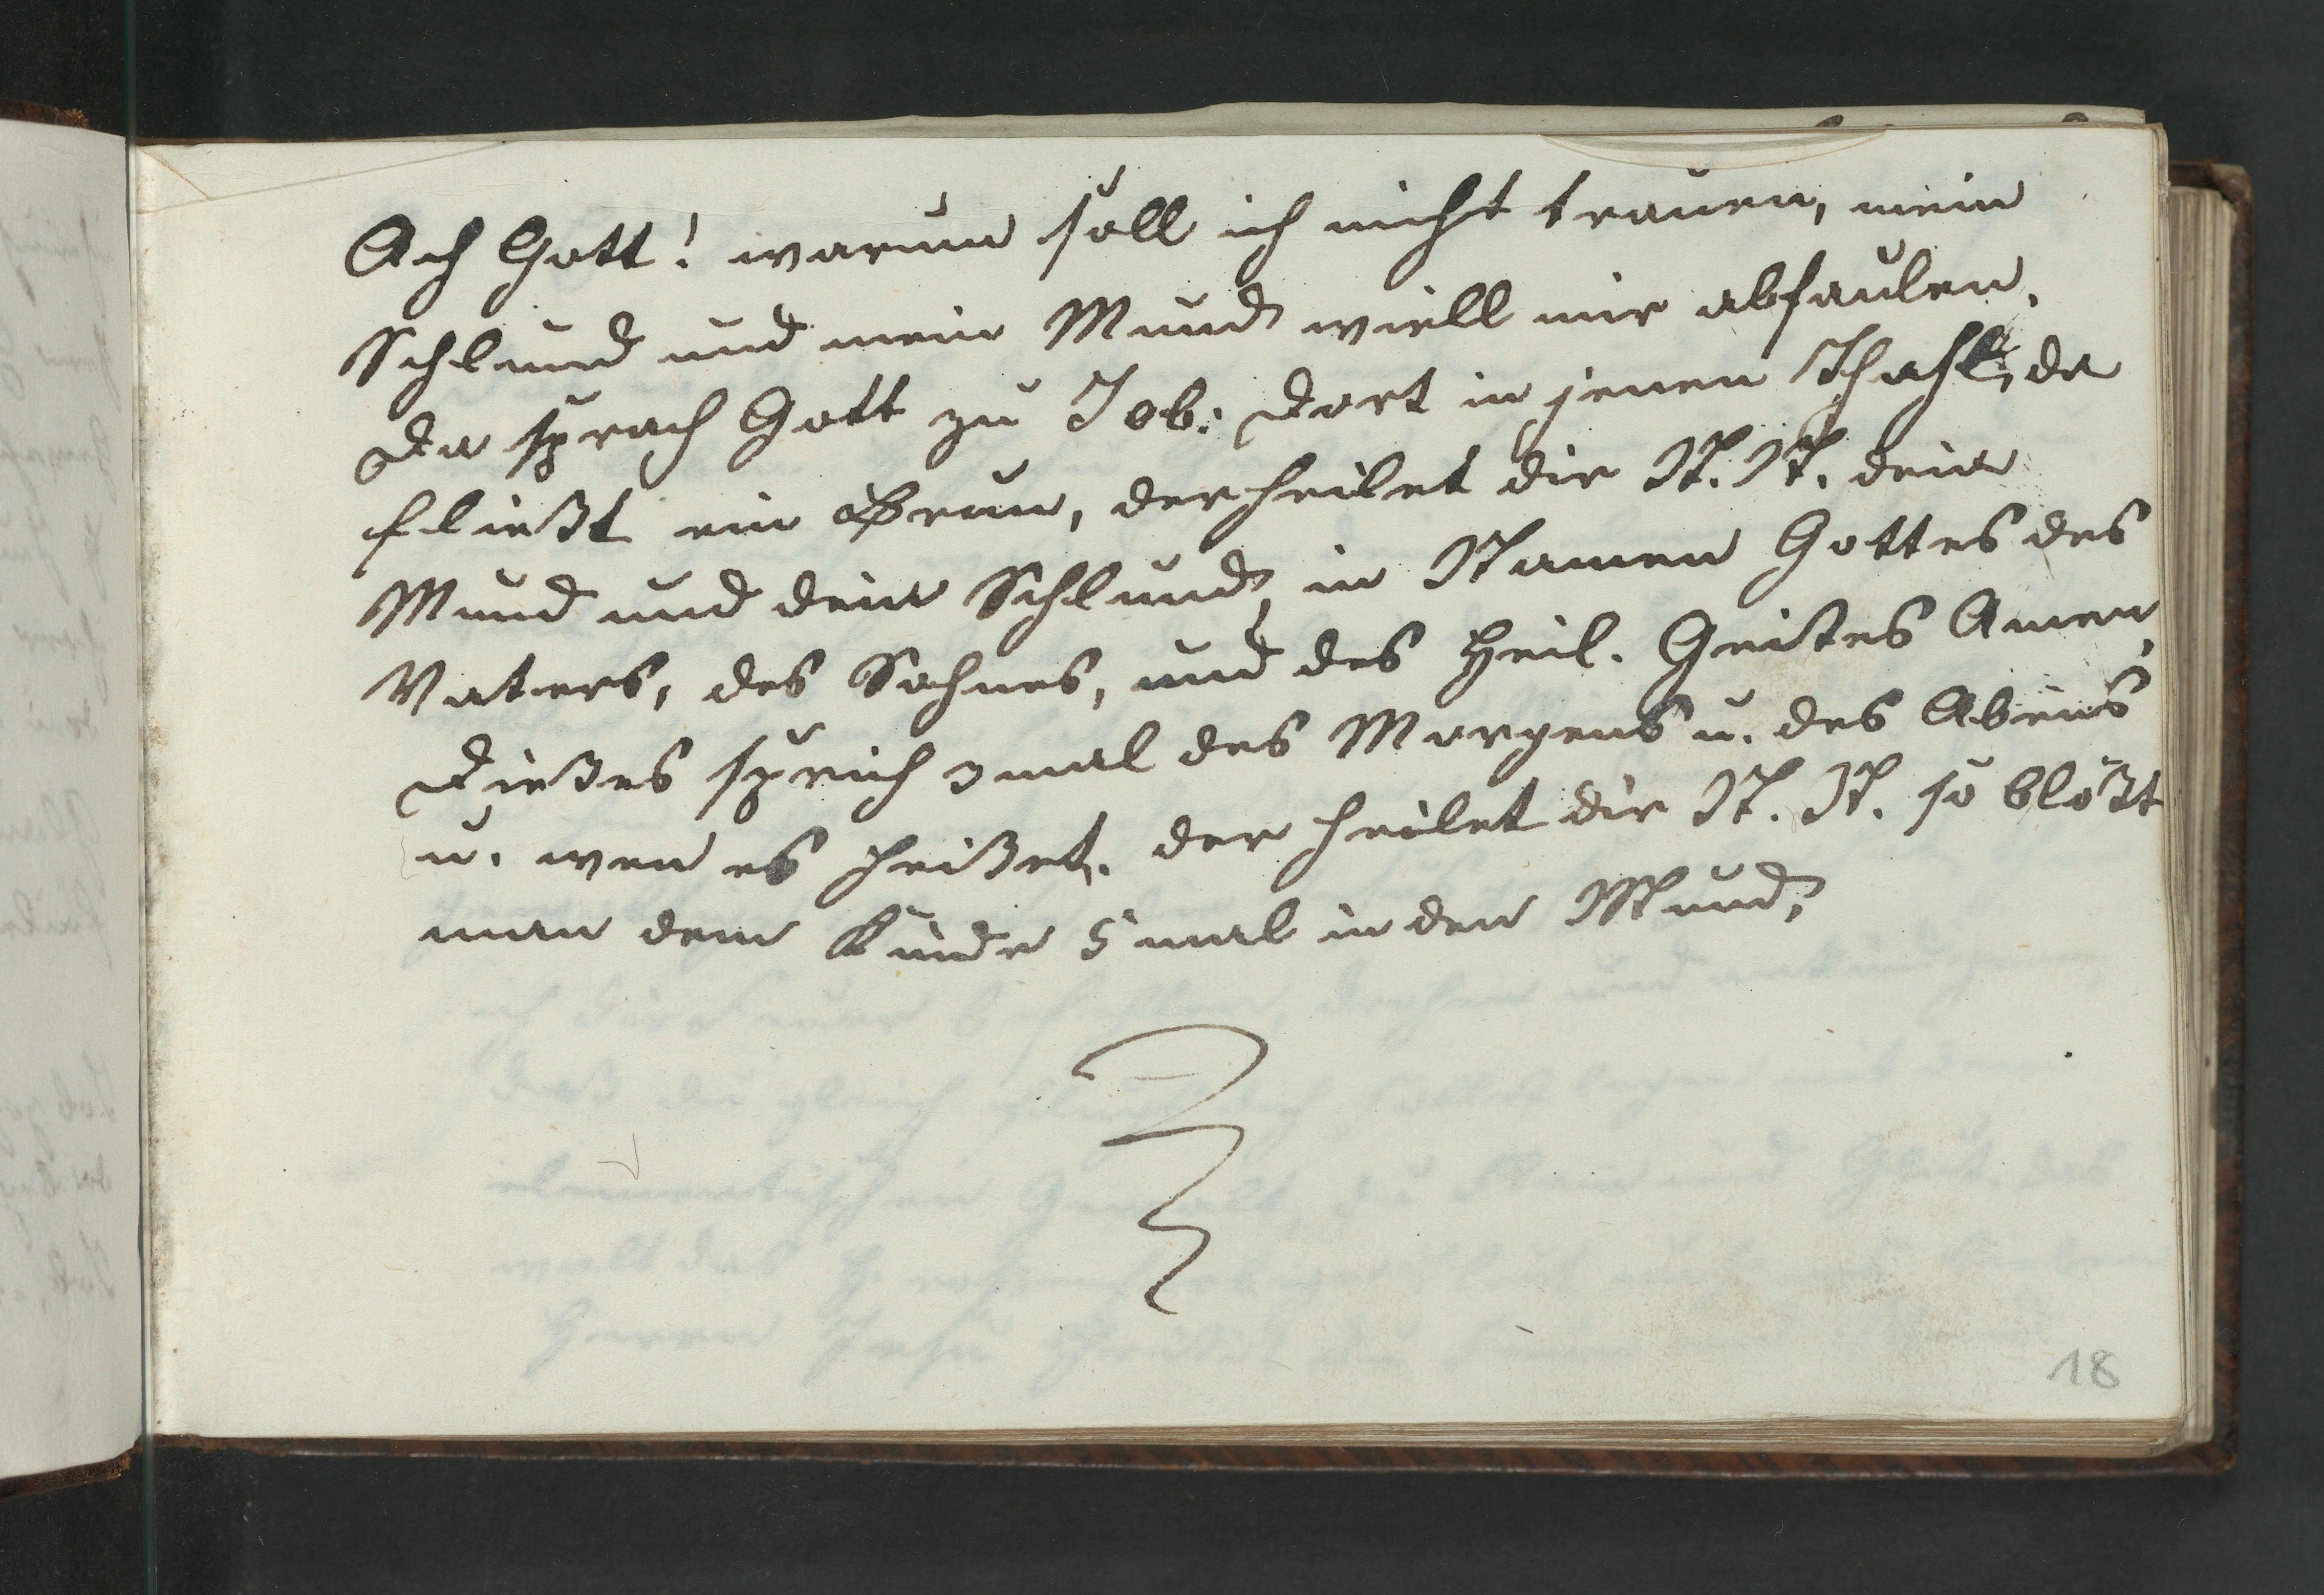 Ach Gott! warum soll ich nicht trauen, mein
Schlund und mein Mund wiell mir abfaulen.
Da sprach Gott zu Job: Dort in jenen Thahl, da
fließt ein Brun, der heilet dir N. N. dein
Mund und dein Schlund, in Namen Gottes des
Vaters, des Sohnes, und des Heil. Geistes Amen,
Dießes sprich 3 mal des Morgens u. des Abens
u. wen es heißet. der heilet dir N. N. so blößt
man dem Kinde 5 mal in den Mund,
18